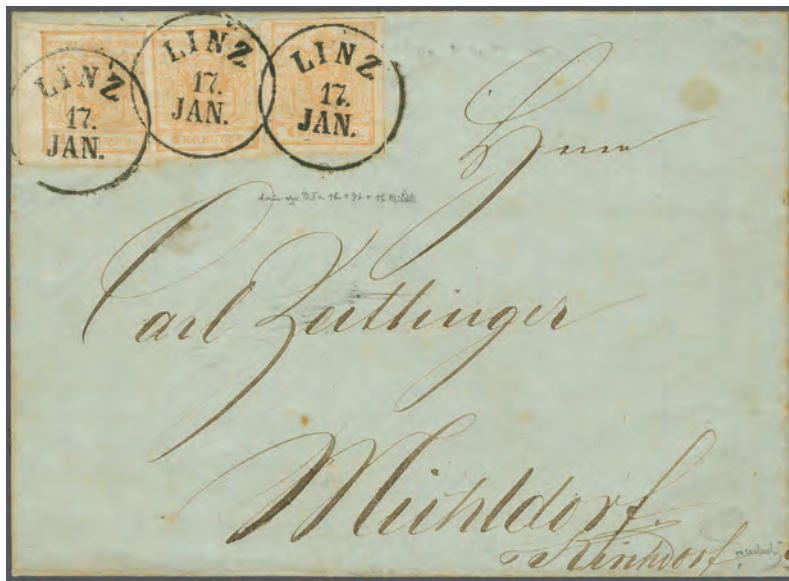 LINZ
17.
JAN.
LINZ
17.
JAN.
LINZ
17.
JAN.
Herrn
Carl Zeittlinger
Mühldorf.
Kirchdorf.